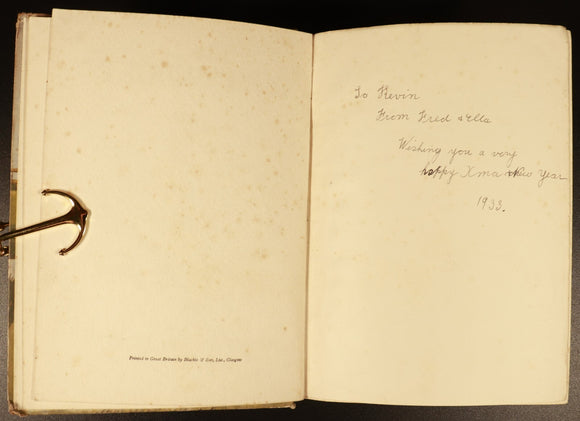 Printed in Great Britain by Blackie & Son, Ltd., Glasgow
To Kevin
From Fred & Ella
Wishing you a very
happy Xmas & New Year
1933.